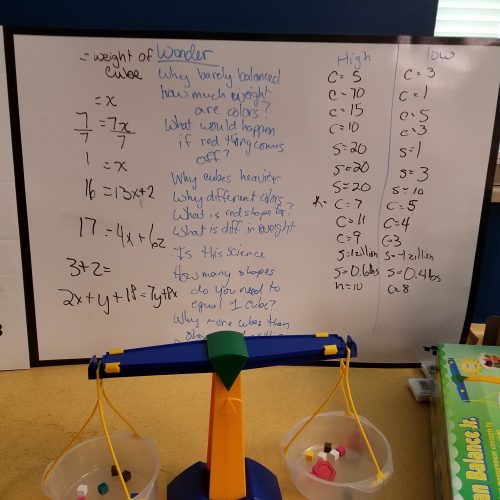 = weight of cube
= x
7/7 = 7x/7
1 = x
16 = 13x+2
17 = 4x+6z
3+2=
2x+y+18=7y+8x
Wonder
Why barely balanced
how much weight
are colors?
What would happen
if red thing comes
off?
Why cubes heavier
Why different colors
What is red shape for?
What is diff in weight
Is this science
How many shapes
do you need to
equal 1 cube?
Why more cubes than
High
C=5
C=70
C=15
C=10
S=20
S=20
S=20
C=7
C=11
C=9
S=1zillion
S=0.6lbs
h=10
low
C=3
C=1
C=5
C=3
S=1
S=3
S=10
C=5
C=4
C=3
S=-1zillion
S=0.4lbs
C=8
Balance Jr.